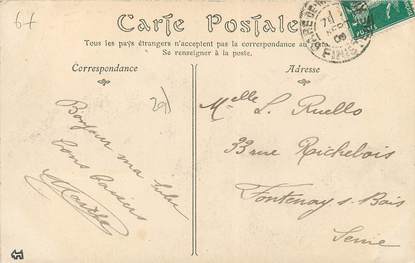 Carte Postale
Tous les pays étrangers n'acceptent pas la correspondance au
Se renseigner à la poste.
Correspondance
Adresse
Bonjour ma
bons baisers
Melle L. Ruello
33 rue Richebois
Fontenay s. Bois
Seine